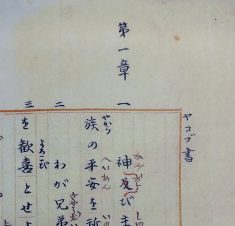 ヤコブ書
第一章
一 神及び主
族の平安を祈
二 わが兄弟
三 を歓喜とせよ